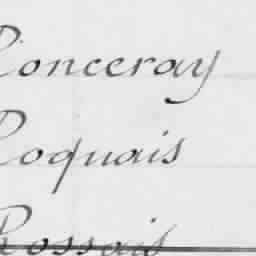 Ronceray
Roquais
Rossait